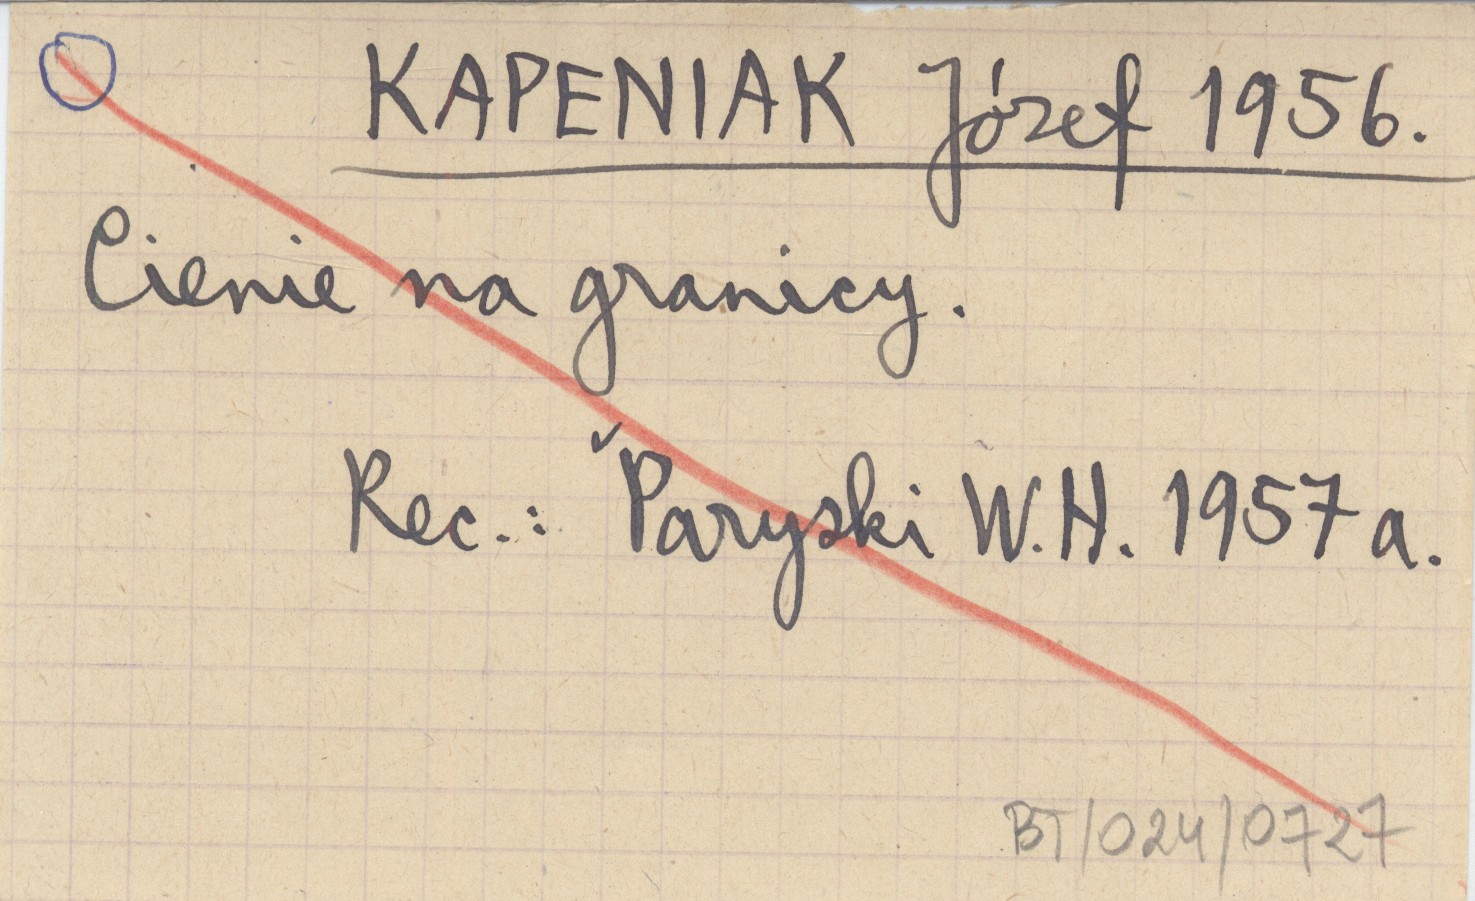 KAPENIAK Józef 1956.
Cienie na granicy.
Rec.: Paryski W.H. 1957a.
BT/024/0727